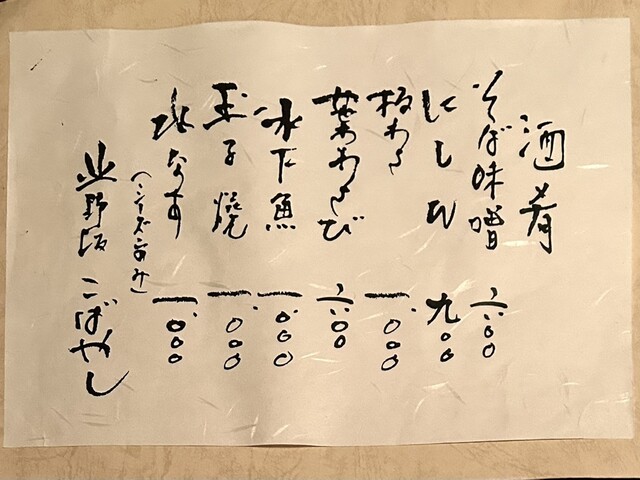 酒肴
そば味噌 六〇〇
にしん 九〇〇
板わさ 一、〇〇〇
葉わさび 六〇〇
氷下魚 一、〇〇〇
玉子焼 一、〇〇〇
水なす 一、〇〇〇
(シーズンのみ)
北野坂 こばやし